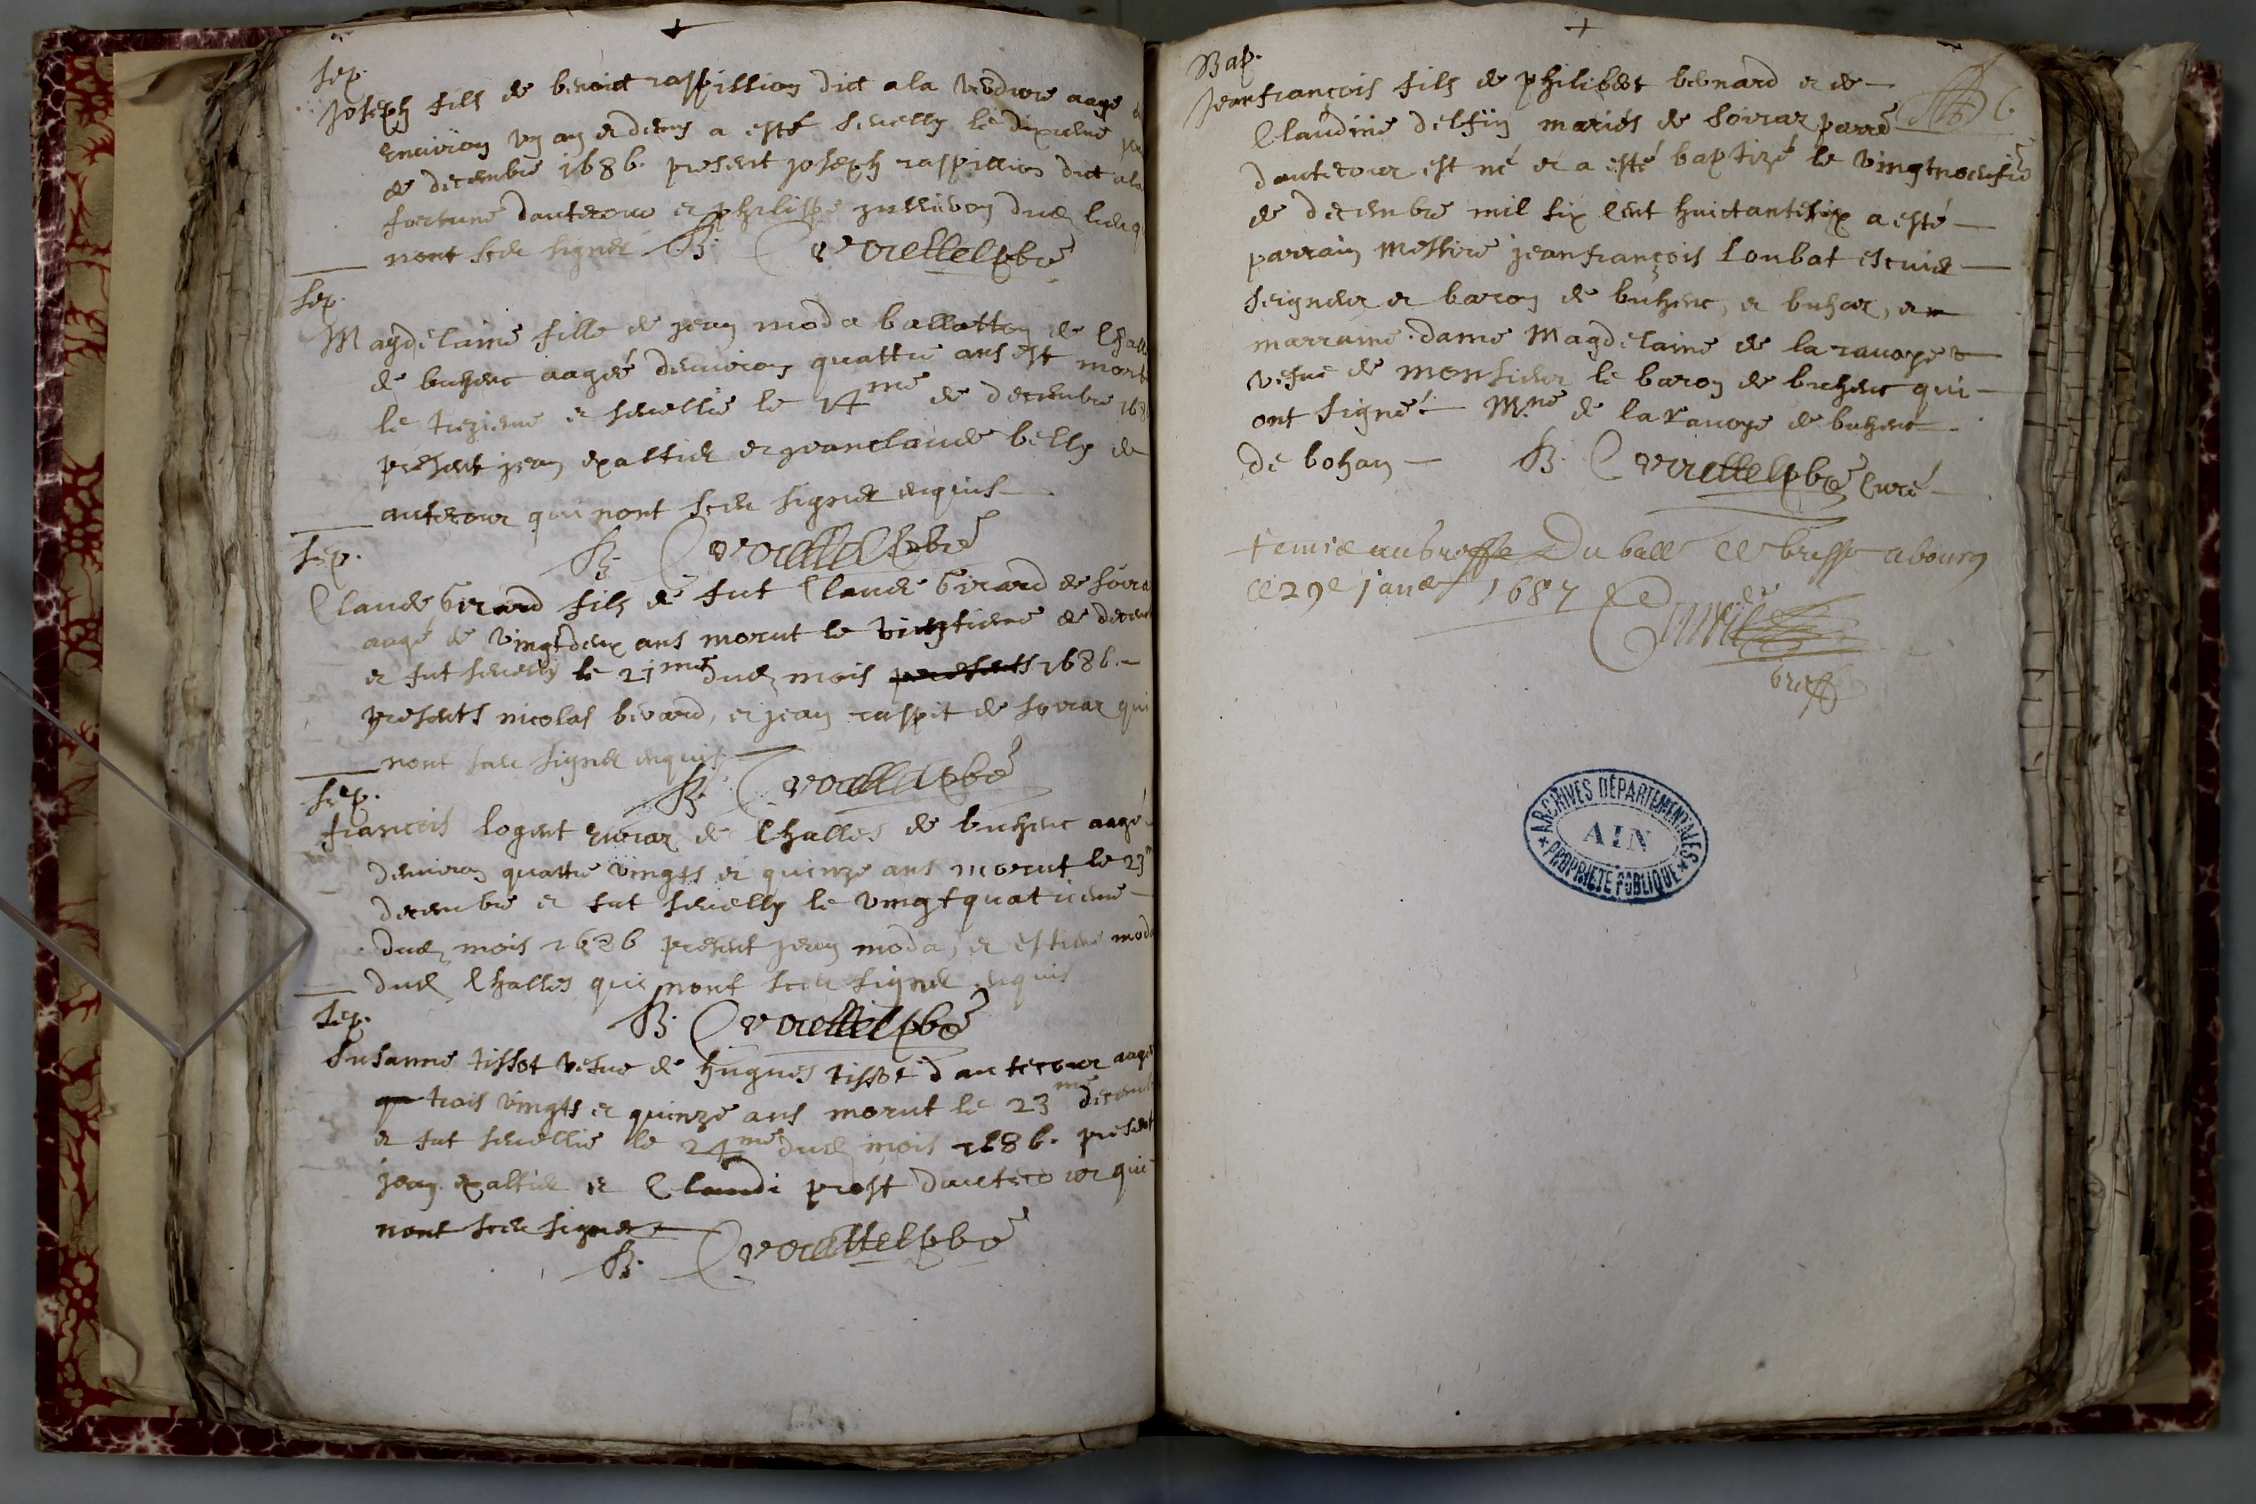 Sep.
Joseph fils de benoict raspillion dict a la verdure aagé
environ un an et demy a esté sevelly le dixieme
de decembre 1686. present joseph raspillion dict a la
fortune dautecour et philippe
nont sceu signer B. Cvoiellel pbre
Sep.
Magdelaine fille de jean moda ballatton de Challe
de buhenc aagée denviron quattre ans est morte
le trezieme et sevellie le 14me de decembre 168
present jean exaltier et jeanclaude belly de
autecour qui nont sceu signer enquis
B. Cvoiellel pbre
Sep.
Claude Girard fils de fut Claude Girard de Soira
aagé de vingtdeux ans morut le vingtieme de decem
et fut sevelly le 21me dud. mois presents 1686.
presents nicolas bevard, et jean raspit de soirar qui
nont sceu signer enquis
B. Cvoiellel pbre
Sep.
françois logent de Challes de buhenc aagé
denviron quattre vingts et quinze ans morut le 23m
decembre et fut sevelly le vingtquatrieme
dud. mois 1686 present jean moda, et estiene moda
dud. Challes qui nont sceu signer enquis
B. Cvoiellel pbre
Sep.
Susanne tissot vefve de hugues tissot dautecour aagée
trois vingts et quinze ans morut le 23me decemb
et fut sevellie le 24me dud. mois 1686. present
jean exaltier et Claudi prost dautecour qui
nont sceu signer
B. Cvoiellel pbre
Bap.
Jeanfrançois fils de philibert bevnard et de
Claudine delfin mariés de Soirar parre
dautecour est né et a esté baptizé le vingtneufie
de decembre mil six cent huictantesix a esté
parrain Messire jeanfrançois Loubat escuier
seigneur et baron de buhenc, et buhar, et
marraine dame Magdelaine de la ravoye
vefve de monsieur le baron de buhenc qui
ont signé. Mne de la ravoye de buhenc
de bohan B. Cvoiellel pbre Curé
remis au greffe Du balle de bresse a bourg
ce 29e janer 1687
greff
ARCHIVES DÉPARTEMENTALES
AIN
PROPRIÉTÉ PUBLIQUE